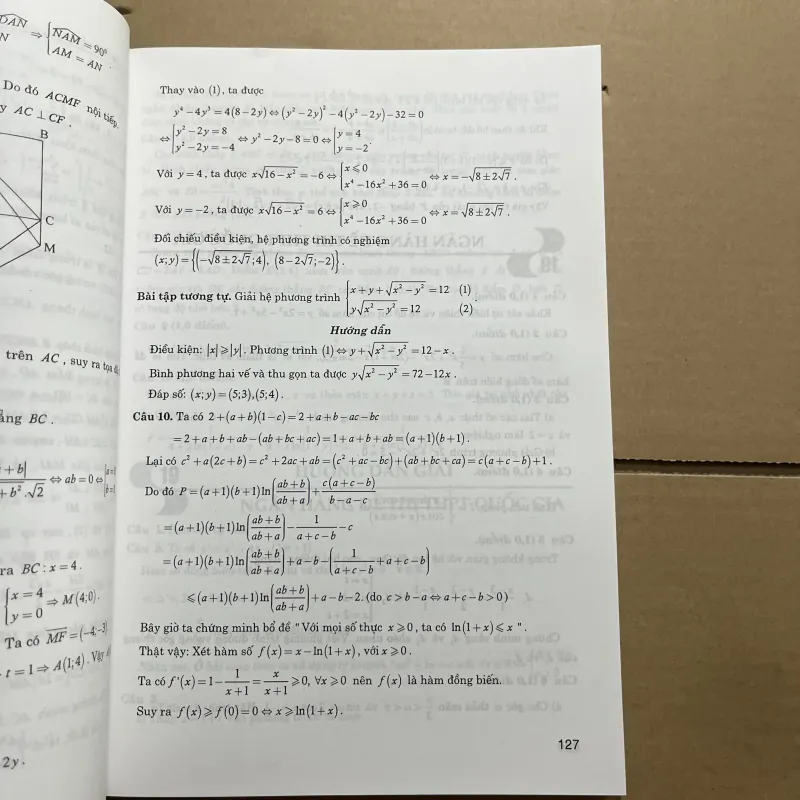 DAN
N ⇒ { NAM = 90°
AM = AN .
Do đó ACMF nội tiếp.
y AC ⊥ CF .
B
C
M
trên AC , suy ra tọa
ẳng BC .
+ b|
+ b² . √2 ⇔ ab = 0 ⇔ [ a =
b =
ra BC : x = 4 .
{ x = 4
y = 0 ⇒ M(4;0) .
Ta có MF = (−4;−3)
t = 1 ⇒ A(1;4) . Vậy
2y .
Thay vào (1), ta được
y⁴ − 4y³ = 4(8 − 2y) ⇔ (y² − 2y)² − 4(y² − 2y) − 32 = 0
⇔ [ y² − 2y = 8
y² − 2y = −4 ⇔ y² − 2y − 8 = 0 ⇔ [ y = 4
y = −2 .
Với y = 4, ta được x√(16 − x²) = −6 ⇔ { x ⩽ 0
x⁴ − 16x² + 36 = 0 ⇔ x = −√(8 ± 2√7) .
Với y = −2, ta được x√(16 − x²) = 6 ⇔ { x ⩾ 0
x⁴ − 16x² + 36 = 0 ⇔ x = √(8 ± 2√7) .
Đối chiếu điều kiện, hệ phương trình có nghiệm
(x;y) = {(−√(8 ± 2√7);4), (8 − 2√7;−2)} .
Bài tập tương tự. Giải hệ phương trình { x + y + √(x² − y²) = 12 (1)
y√(x² − y²) = 12 (2) .
Hướng dẫn
Điều kiện: |x| ⩾ |y| . Phương trình (1) ⇔ y + √(x² − y²) = 12 − x .
Bình phương hai vế và thu gọn ta được y√(x² − y²) = 72 − 12x .
Đáp số: (x;y) = (5;3),(5;4) .
Câu 10. Ta có 2 + (a + b)(1 − c) = 2 + a + b − ac − bc
= 2 + a + b + ab − (ab + bc + ac) = 1 + a + b + ab = (a + 1)(b + 1) .
Lại có c² + a(2c + b) = c² + 2ac + ab = (c² + ac − bc) + (ab + bc + ca) = c(a + c − b) + 1 .
Do đó P = (a + 1)(b + 1)ln((ab + b)/(ab + a)) + c(a + c − b)/(b − a − c)
= (a + 1)(b + 1)ln((ab + b)/(ab + a)) − 1/(a + c − b) − c
= (a + 1)(b + 1)ln((ab + b)/(ab + a)) + a − b − (1/(a + c − b) + a + c − b)
⩽ (a + 1)(b + 1)ln((ab + b)/(ab + a)) + a − b − 2. (do c > b − a ⇔ a + c − b > 0)
Bây giờ ta chứng minh bổ đề " Với mọi số thực x ⩾ 0 , ta có ln(1 + x) ⩽ x " .
Thật vậy: Xét hàm số f(x) = x − ln(1 + x) , với x ⩾ 0 .
Ta có f'(x) = 1 − 1/(x + 1) = x/(x + 1) ⩾ 0, ∀x ⩾ 0 nên f(x) là hàm đồng biến.
Suy ra f(x) ⩾ f(0) = 0 ⇔ x ⩾ ln(1 + x) .
127